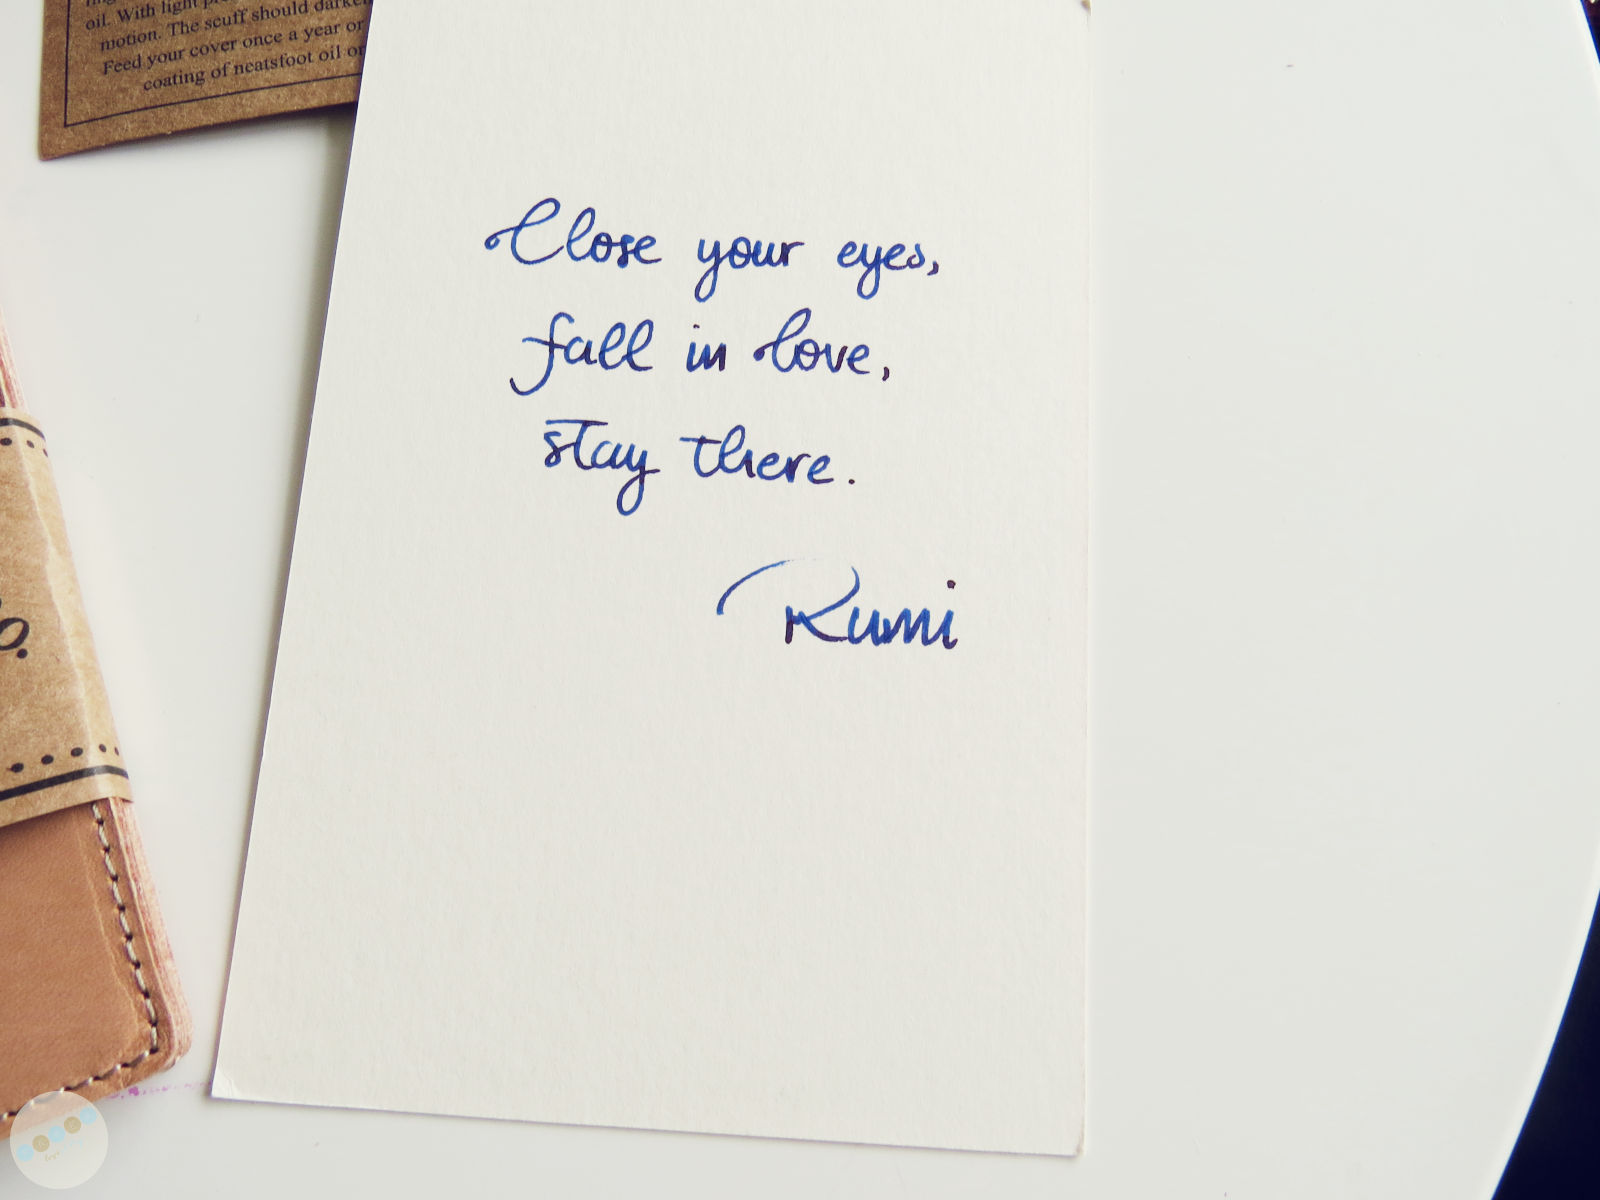 oil. With light
motion. The scuff should darken
Feed your cover once a year or
coating of neatsfoot oil or
Close your eyes,
fall in love,
stay there.
Rumi